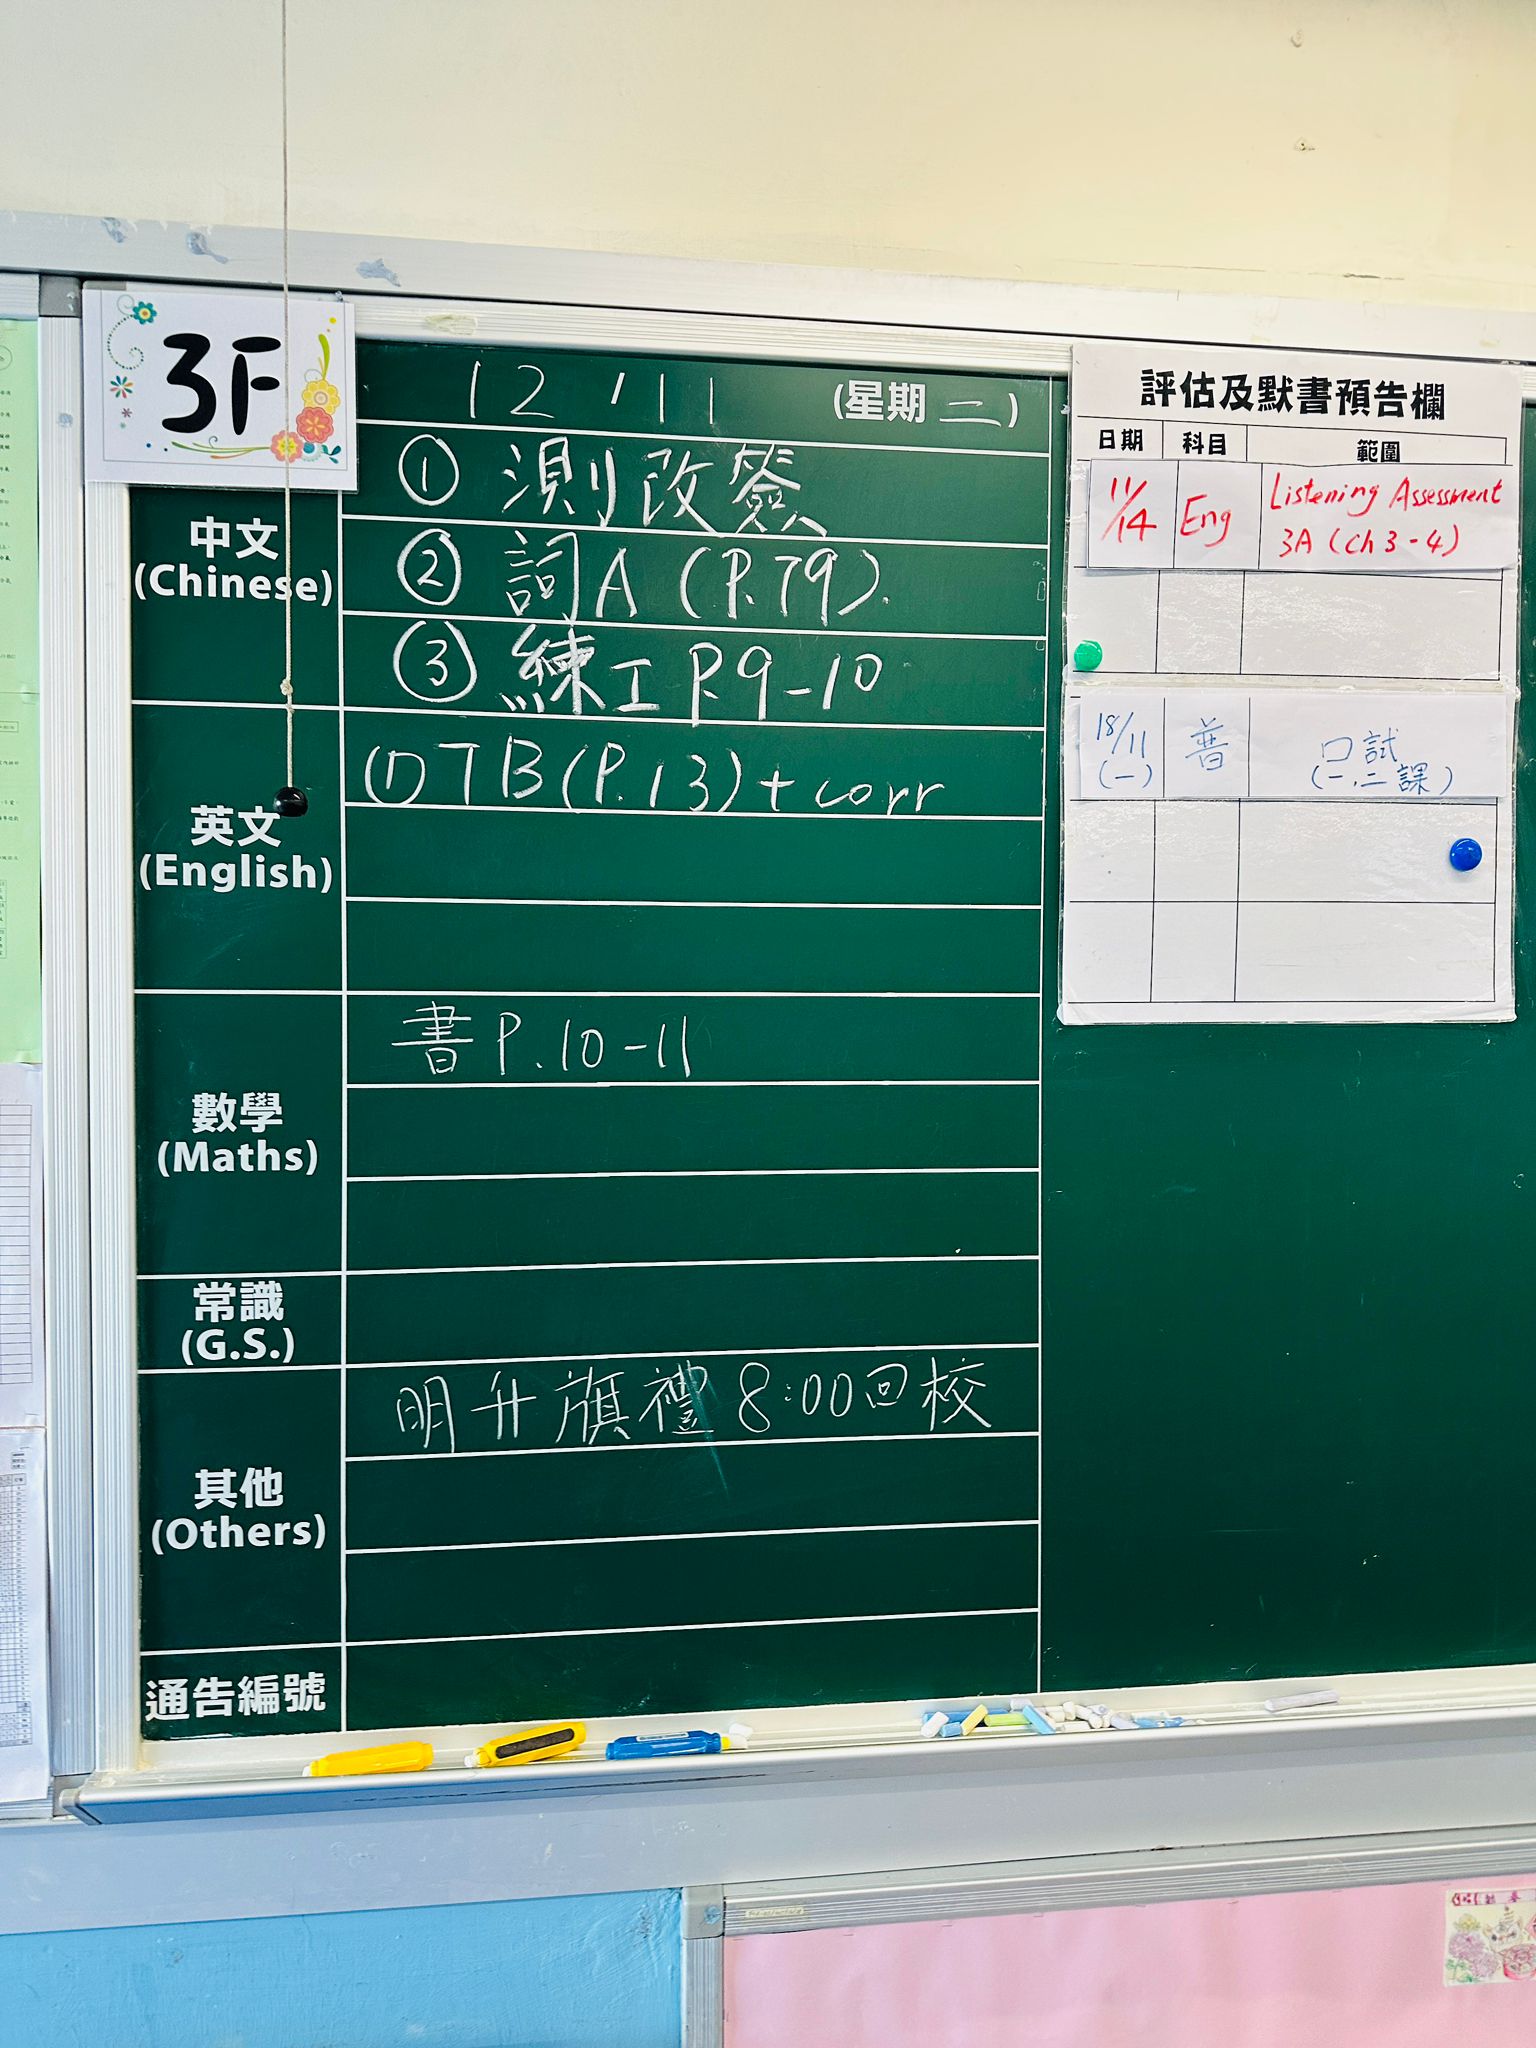 3F
12/11 (星期二)
中文
(Chinese)
① 測改簽
② 詞A (P.79).
③ 練工 P.9-10
英文
(English)
(1) TB (P.13) + corr
數學
(Maths)
書 P.10-11
常識
(G.S.)
其他
(Others)
明升旗禮 8:00回校
通告編號
評估及默書預告欄
日期 科目 範圍
11/14 Eng Listening Assessment
3A (Ch 3-4)
18/11 (一) 普 口試
(一,二課)